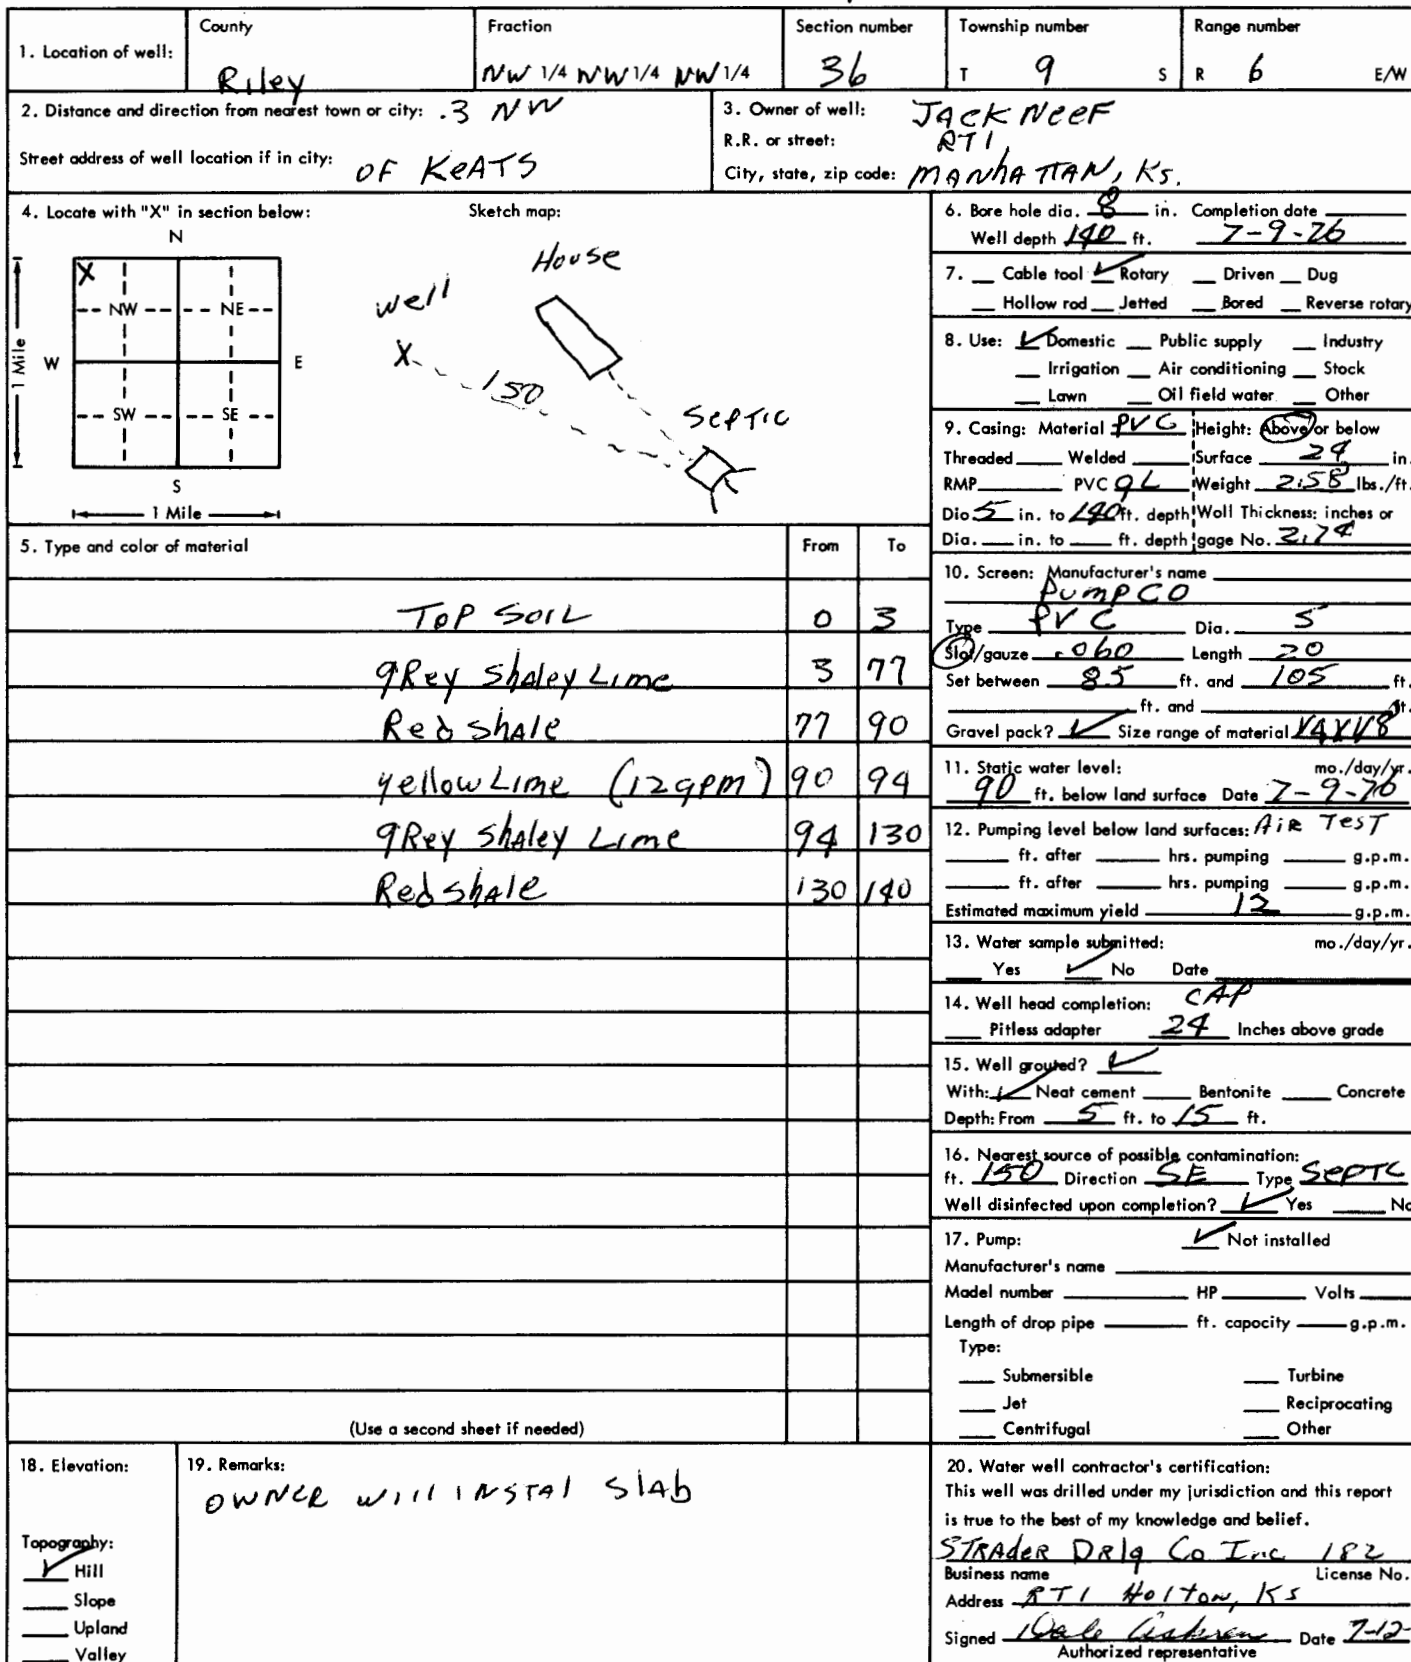 1. Location of well: County Riley Fraction NW 1/4 NW 1/4 NW 1/4 Section number 36 Township number T 9 S Range number R 6 E/W
2. Distance and direction from nearest town or city: .3 NW
Street address of well location if in city: OF KeATS
3. Owner of well: JACK NeeF
R.R. or street: RT1
City, state, zip code: MANhATTAN, Ks.
4. Locate with "X" in section below:
N
X
NW NE
W E
SW SE
S
1 Mile
1 Mile
Sketch map:
House
well
X
150
SepTIC
5. Type and color of material From To
Top SOIL 0 3
gRey Shaley Lime 3 77
Red shAle 77 90
yellow Lime (12gpm) 90 94
gRey ShAley Lime 94 130
Red shAle 130 140
(Use a second sheet if needed)
6. Bore hole dia. 8 in. Completion date
Well depth 140 ft. 7-9-76
7. Cable tool ✓ Rotary Driven Dug
Hollow rod Jetted Bored Reverse rotary
8. Use: ✓ Domestic Public supply Industry
Irrigation Air conditioning Stock
Lawn Oil field water Other
9. Casing: Material PVC Height: Above or below
Threaded Welded Surface 24 in.
RMP PVC gL Weight 2.58 lbs./ft.
Dia 5 in. to 140 ft. depth Wall Thickness: inches or
Dia. in. to ft. depth gage No. 2.74
10. Screen: Manufacturer's name
PumpCO
Type PVC Dia. 5
Slot/gauze .060 Length 20
Set between 85 ft. and 105 ft.
ft. and ft.
Gravel pack? ✓ Size range of material 1/4X1/8
11. Static water level: mo./day/yr.
90 ft. below land surface Date 7-9-76
12. Pumping level below land surfaces: AiR TesT
ft. after hrs. pumping g.p.m.
ft. after hrs. pumping g.p.m.
Estimated maximum yield 12 g.p.m.
13. Water sample submitted: mo./day/yr.
Yes ✓ No Date
14. Well head completion: CAP
Pitless adapter 24 Inches above grade
15. Well grouted? ✓
With: ✓ Neat cement Bentonite Concrete
Depth: From 5 ft. to 15 ft.
16. Nearest source of possible contamination:
ft. 150 Direction SE Type SepTC
Well disinfected upon completion? ✓ Yes No
17. Pump: ✓ Not installed
Manufacturer's name
Model number HP Volts
Length of drop pipe ft. capacity g.p.m.
Type:
Submersible Turbine
Jet Reciprocating
Centrifugal Other
18. Elevation:
Topography:
✓ Hill
Slope
Upland
Valley
19. Remarks:
OWNER will INSTAl SlAb
20. Water well contractor's certification:
This well was drilled under my jurisdiction and this report
is true to the best of my knowledge and belief.
STRAdeR DRlg Co Inc 182
Business name License No.
Address RT1 HolTon, KS
Signed Dale Date 7-12-
Authorized representative